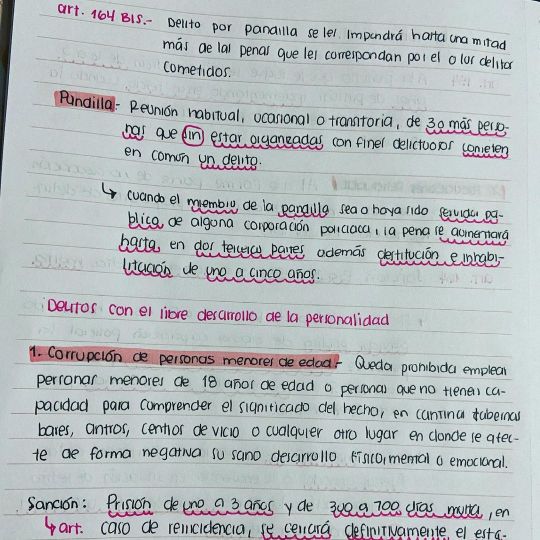 art. 164 BIS.- Delito por pandilla se les impondrá hasta una mitad
más de las penas que les correspondan por el o los delitos
cometidos.
Pandilla- Reunión habitual, ocasional o transitoria, de 3 o más perso-
nas que sin estar organizadas con fines delictuosos cometen
en común un delito.
↳ cuando el miembro de la pandilla sea o haya sido servidor pú-
blico, de alguna corporación policiaca, la pena se aumentará
hasta en dos terceras partes además destitución e inhabi-
litación de uno a cinco años.
Delitos con el libre desarrollo de la personalidad
1. Corrupción de personas menores de edad- Queda prohibida emplear
personas menores de 18 años de edad o personas que no tienes ca-
pacidad para comprender el significado del hecho, en cantina tabernas
bares, antros, centros de vicio o cualquier otro lugar en donde se afec-
te de forma negativa su sano desarrollo físico, mental o emocional.
Sanción: Prisión de uno a 3 años y de 300 a 700 días multa, en
↳ art. caso de reincidencia, se cerrará definitivamente el esta-